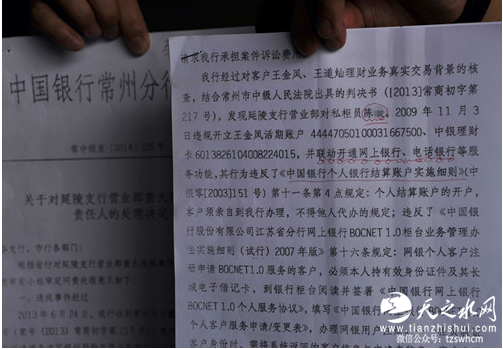 中国银行常州分行
常中银发［2014］235号
关于对延陵支行营业部重大
责任人的处理决定
各支行、市行各部门：
一、违规事件经过
2013年6月24日，我行收到
请求我行承担案件诉讼费用
我行经过对客户王金凤、王道灿理财业务真实交易背景的核
查，结合常州市中级人民法院出具的判决书（[2013]常商初字第
217号），发现延陵支行营业部对私柜员陈 ，2009年11月3
日违规开立王金凤活期账户 44447050100031667500、中银理财
卡6013826104008224015，并联动开通网上银行、电话银行等服
务功能，其行为违反了《中国银行个人银行结算账户实施细则》（中
银零[2003]151号）第十一条第4点规定：个人结算账户的开户，
客户须亲自到我行办理，不得他人代办的规定；违反了《中国银
行股份有限公司江苏省分行网上银行BOCNET1.0柜台业务管理办
法实施细则（试行）2007年版》第十六条规定：网银个人客户注
册申请BOCNET1.0服务的客户，必须本人持有效身份证件及其长
城电子借记卡，到银行柜台阅读并签署《中国银行网上银行
BOCNET1.0个人服务协议》，填写《中国银行网上
个人客户服务申请/变更表》，办理网银开户
天之水网
www.tianzhishui.com
微信公众号：tzswhcm